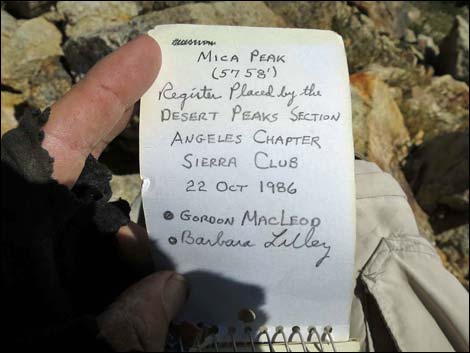 MICA PEAK
(5758')
Register Placed by the
DESERT PEAKS SECTION
ANGELES CHAPTER
SIERRA CLUB
22 OCT 1986
● GORDON MACLEOD
● Barbara Lilley